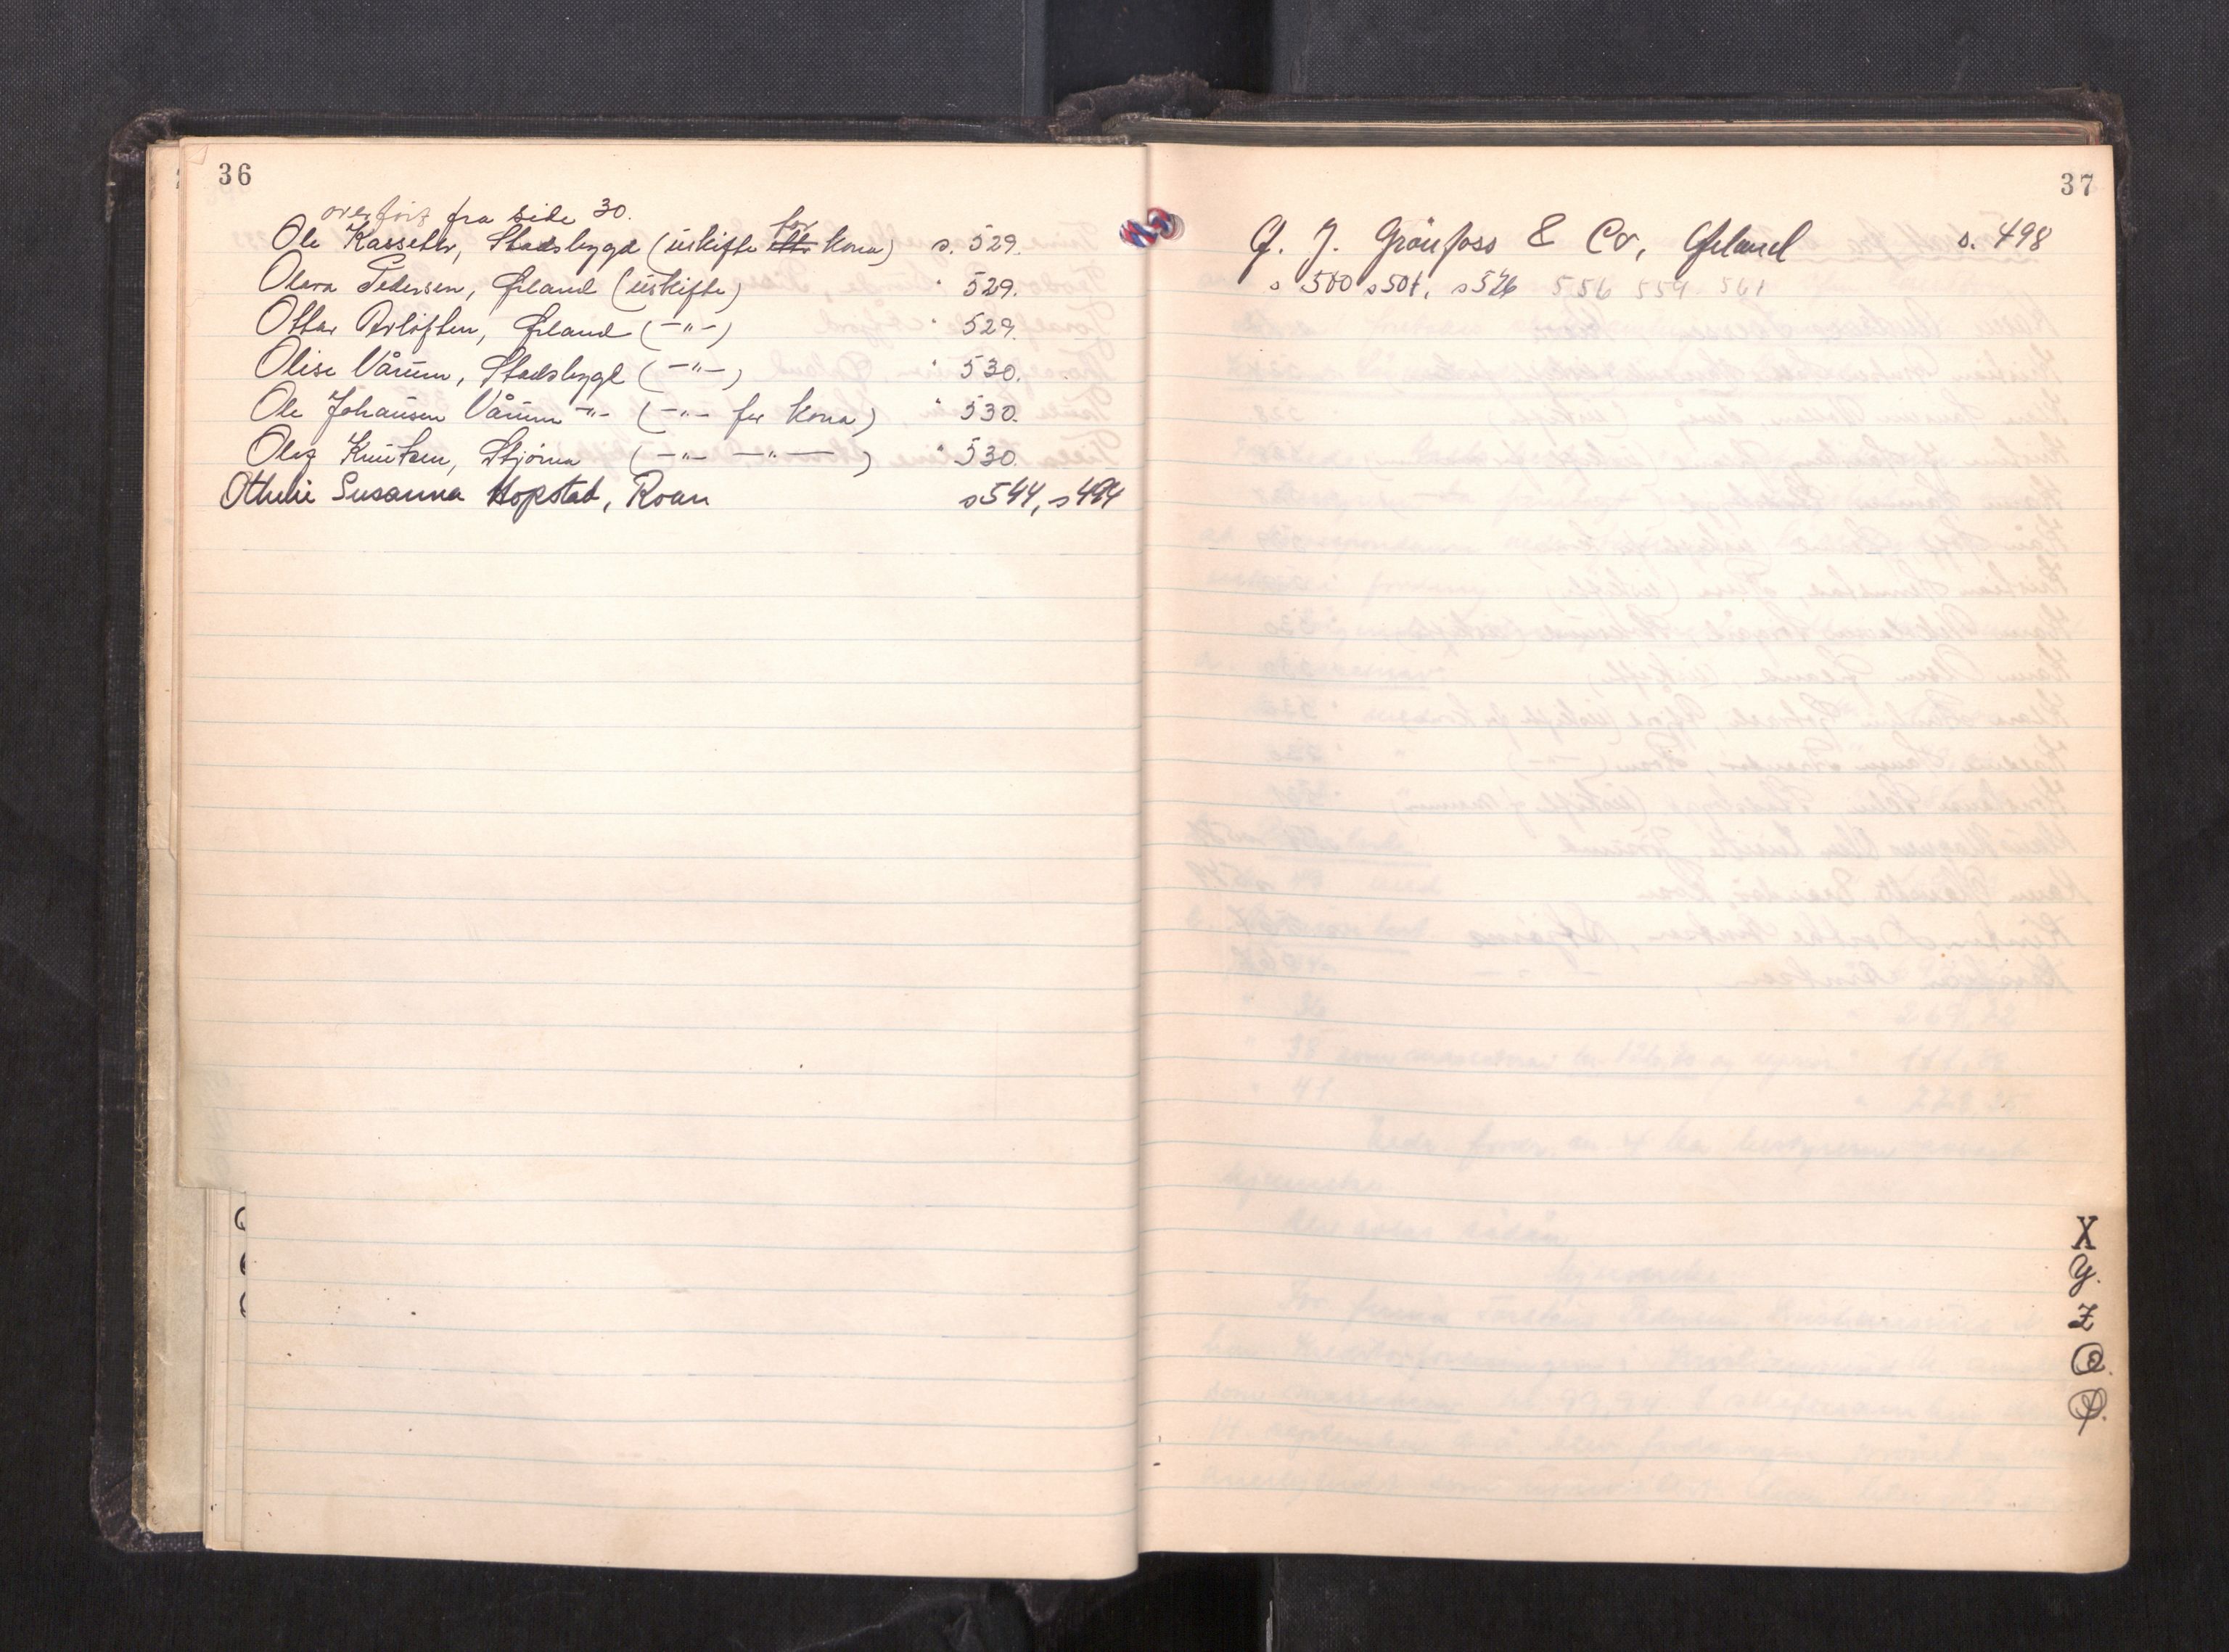 36
overført fra side 30.
Ole Kasseter, Stadsbygd (uskifte for kona) s. 529.
Olava Pedersen, Ørland (uskifte) " 529.
Ottar Ørland (-"-) " 529.
Olise Vårum, Stadsbygd (-"-) " 530.
Ole Johansen Vårum -"- (-"- for kona) " 530.
Knutsen, Stjørna (-"- -"-) " 530.
Othelie Susanna Hopstad, Roan s 544, s 494
37
Ø. J. Grönfoss & Co, Ørland s. 498
s 500 s 501, s 526 556 559 561
X
Y.
Z
Ø.